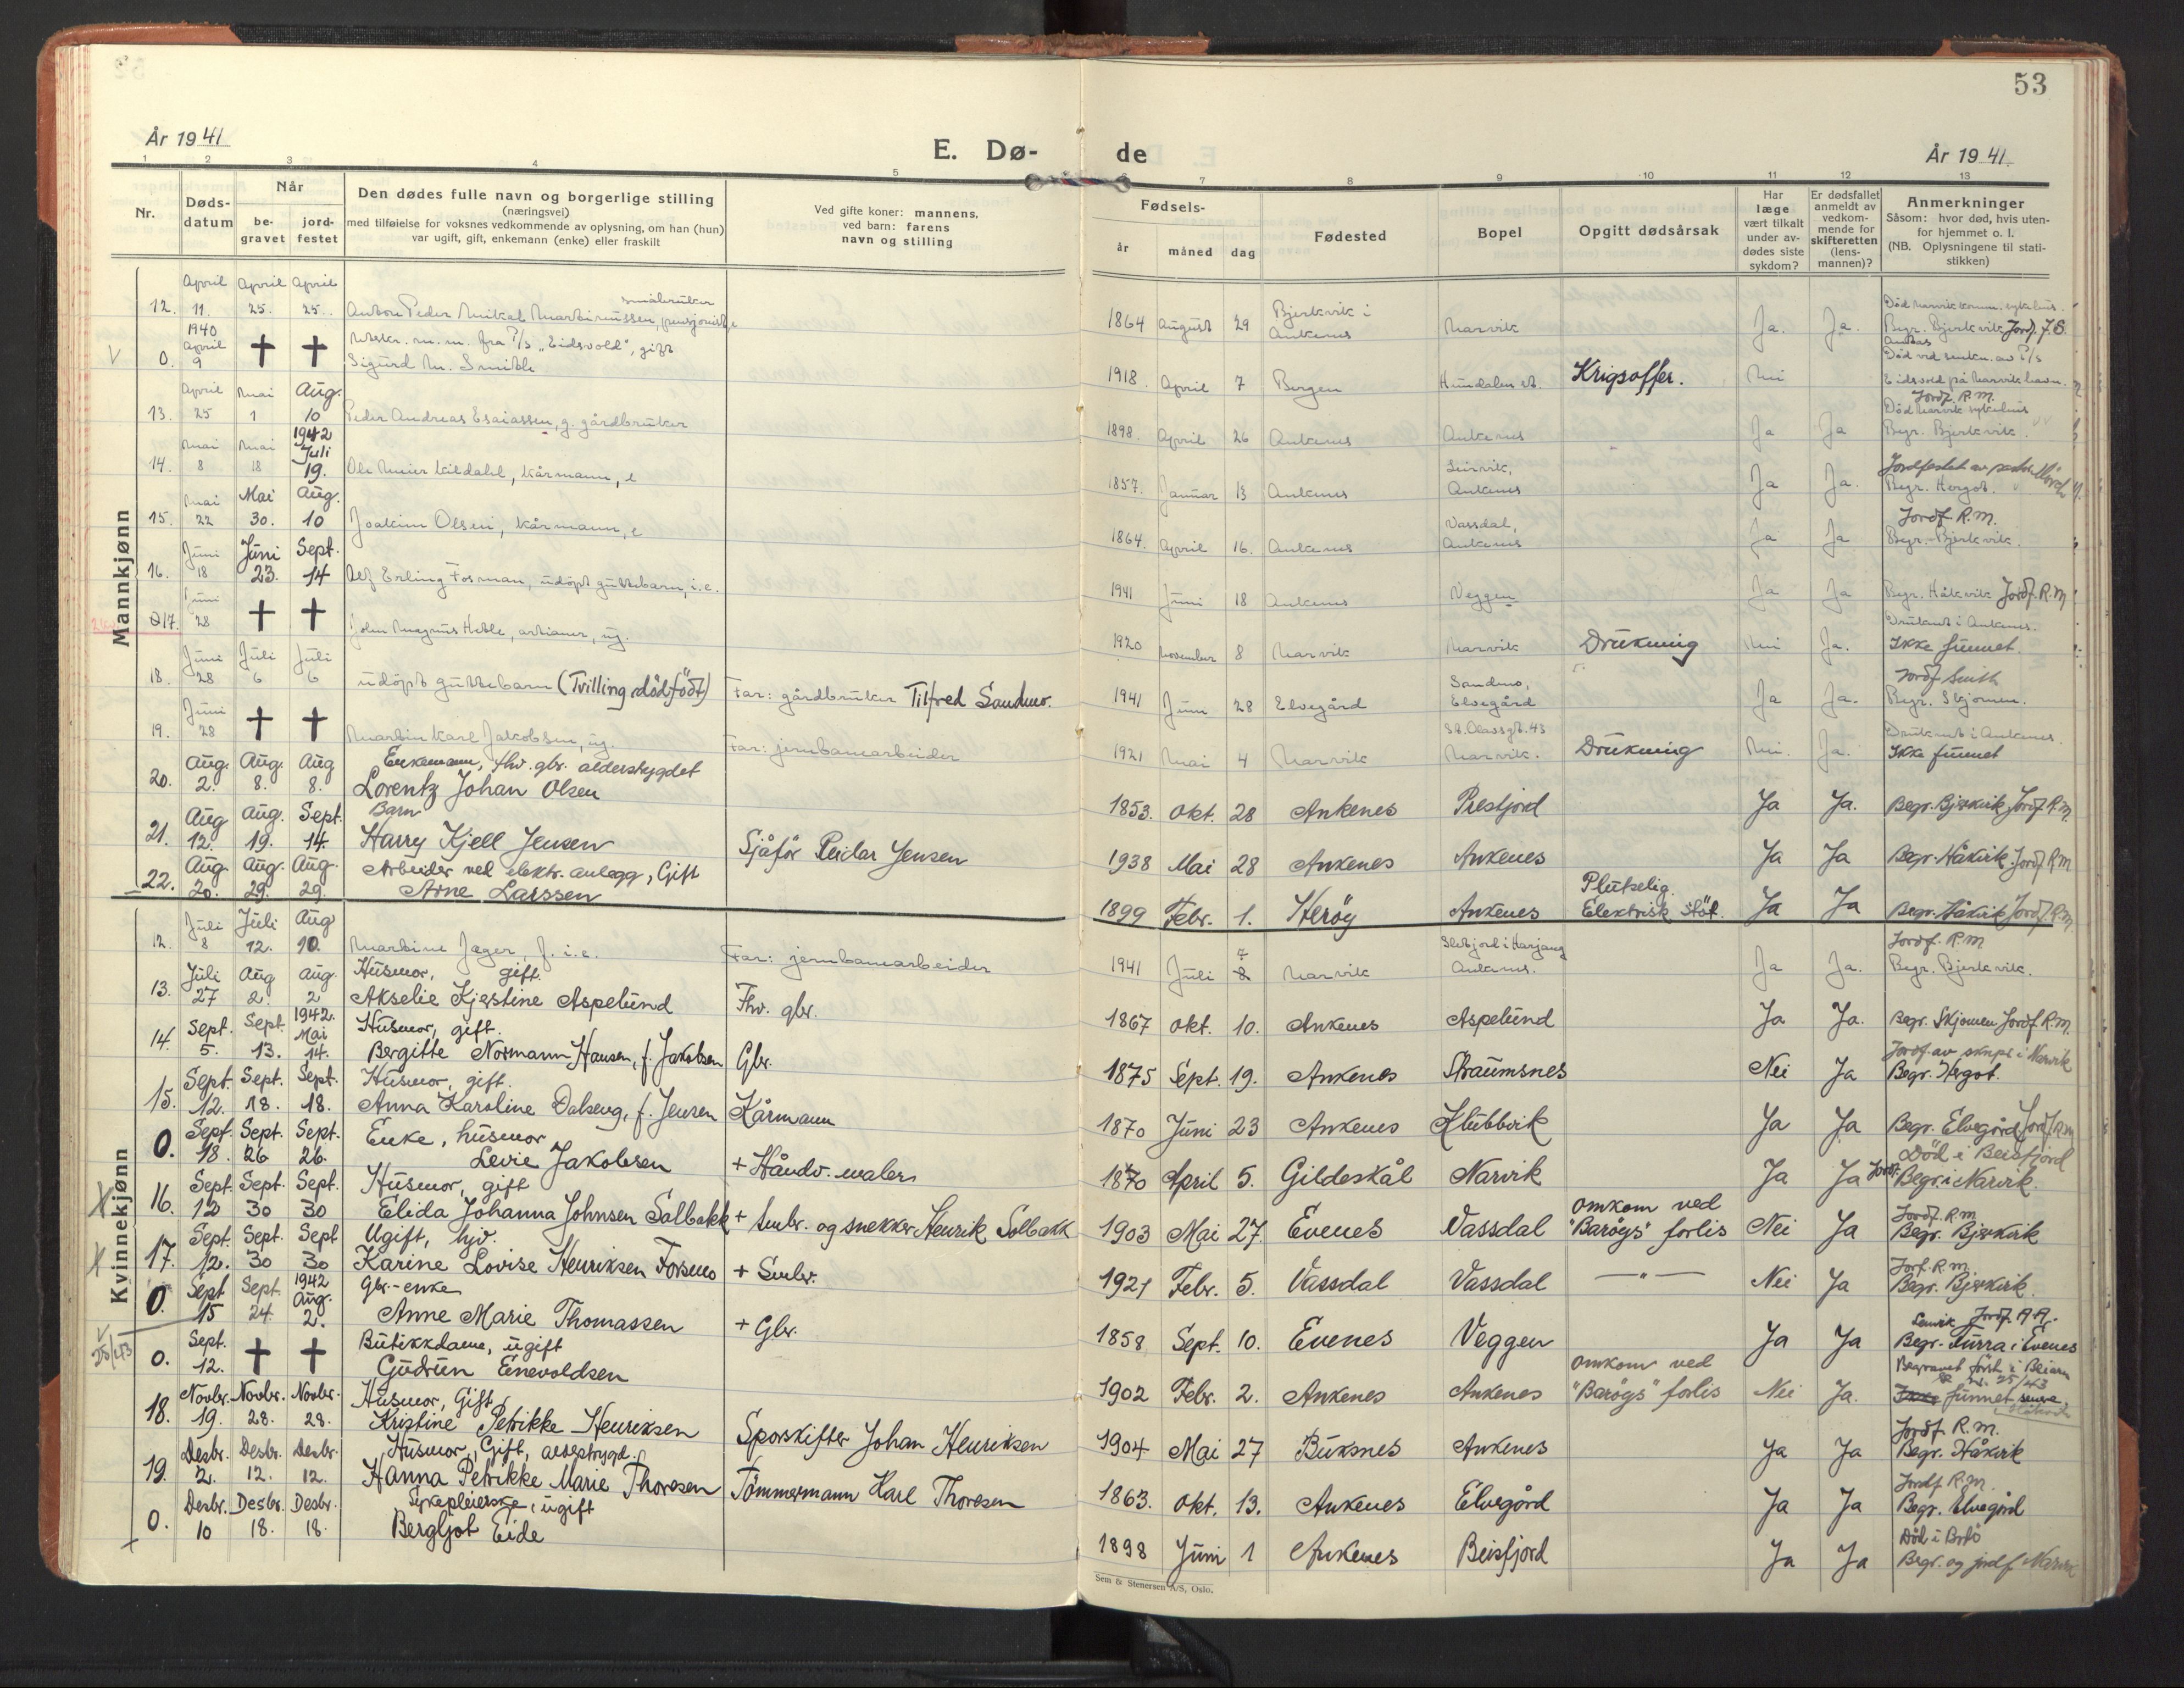 53
År 1941
E. Dø-
de
År 1941.
1 2 3 4 5 6 7 8 9 10 11 12 13
Nr.
Døds-
datum
Når
be-
gravet
jord-
festet
Den dødes fulle navn og borgerlige stilling
(næringsvei)
med tilføielse for voksnes vedkommende av oplysning, om han (hun)
var ugift, gift, enkemann (enke) eller fraskilt
Ved gifte koner: mannens,
ved barn: farens
navn og stilling
Fødsels-
år måned dag
Fødested
Bopel
Opgitt dødsårsak
Har
læge
vært tilkalt
under av-
dødes siste
sykdom?
Er dødsfallet
anmeldt av
vedkom-
mende for
skifteretten
(lens-
mannen)?
Anmerkninger
Såsom: hvor død, hvis uten-
for hjemmet o. l.
(NB. Oplysningene til stati-
stikken)
Mannkjønn
April April April småbruker
12. 11. 25. 25. Anton Peder Mikal Martinussen, pensjonist, e 1864 August 29 Bjerkvik i Ankenes Narvik Ja. Ja. Død Narvik komm. sykehus. Begr. Bjerkvik Jordf. J.S.
1940
April
0. 9 † † fra P/s "Eidsvold", gift
Sigurd M. Smith 1918. April 7 Bergen Krigsoffer. Nei Død ved senkn. av P/s Eidsvold på Narvik havn.
April Mai Aug.
13. 25 1 10 Peder Andreas Esaiassen, g. gårdbruker 1898. April 26 Ankenes Ankenes Ja Ja Jordf. R.M. Død Narvik sykehus Begr. Bjerkvik.
Mai Mai 1942 Juli
14. 8 18 19. Ole Meier Kildahl, kårmann, e 1857. Januar 13 Ankenes Leirvik, Ankenes Ja Ja. Jordfestet av Begr. Hergot.
Mai Mai Aug.
15. 22 30. 10 Joakim Olsen, kårmann, e 1864. April 16. Ankenes Vassdal, Ankenes Ja Ja Jordf. R.M. Begr. Bjerkvik.
Juni Juni Sept.
16. 18 23. 14 Alf Erling Fosman, udöpt guttebarn, i.e. 1941 Juni 18 Ankenes Veggen Ja Ja Begr. Håkvik Jordf. R.M
Juni
17. 28 † † John Magnus Heble, artianer, ug. 1920 November 8 Narvik Narvik Drukning Nei Ja. Druknet i Ankenes. Ikke funnet.
Juni Juli Juli
18. 28 6 6 udöpt guttebarn (Tvilling, dödfödt) Far: gårdbruker Tilfred Sandmo. 1941 Juni 28 Elvegård Sandmo, Elvegård Ja Ja. Jordf Smith Begr. Skjomen.
Juni
19. 28 † † Martin Karl Jakobsen, ug. Far: jernbanearbeider 1921 Mai 4 Narvik St. Olavsgt. 43 Narvik. Drukning Nei. Ja. Druknet i Ankenes. Ikke funnet
Aug. Aug. Aug Enkemann, fhv. gbr. alderstrygdet
20. 2. 8. 8. Lorentz Johan Olsen 1853. Okt. 28 Ankenes Prestjord Ja Ja. Begr. Bjerkvik Jordf. R.M.
Aug Aug. Sept. Barn
21. 12. 19. 14. Harry Kjell Jensen Sjåför Peidar Jensen 1938 Mai 28 Ankenes Ankenes Ja Ja Begr. Håkvik. Jordf R.M
Aug Aug. Aug. Arbeider ved elektr. anlegg, Gift
22. 20. 29. 29. Arne Larssen 1899 Febr. 1. Heröy Ankenes Plutselig. Elektrisk stöt. Ja Ja Begr. Håkvik Jordf. R.M.
Kvinnekjønn
Juli Juli Aug
12. 8 12. 10. Martine Jæger, f. i.e. Far: jernbanearbeider 1941 Juli 7 8 Narvik i Harjang Ankenes. Ja Ja. Jordf. R.M Begr. Bjerkvik.
Juli Aug Aug. Husmor, gift.
13. 27 2. 2 Akselie Kjerstine Aspelund Fhv. gbr. 1867 Okt. 10. Ankenes Aspelund Ja Ja. Begr. Skjomen Jordf R.M.
Sept. Sept. 1942. Mai Husmor, gift.
14. 5. 13. 14. Bergitte Normann Hansen, f. Jakobsen Gbr. 1875 Sept. 19. Ankenes Straumsnes Nei Ja Jordf. av sknpr. i Narvik Begr. Hergot.
Sept. Sept. Sept. Husmor, gift.
15. 12. 18. 18. Anna Karoline Dalseng, f. Jensen Kårmann 1870 Juni 23 Ankenes Klubbvik Ja Ja Begr. Elvegård Jordf RM
Sept. Sept. Sept. Enke, husmor
0. 18. 26 26. Levie Jakobsen + Håndv. maler 1870 April 5. Gildeskål Narvik Ja Ja Död i Beisfjord Jordf. Begr. i Narvik.
Sept. Sept. Sept. Husmor, gift
16. 12 30 30 Elida Johanna Johnsen Solbakk + Smbr. og snekker Henrik Solbakk 1903 Mai 27. Evenes Vassdal Omkom ved "Baröys" forlis Nei Ja Jordf. R.M Begr. Bjerkvik
Sept. Sept. Sept Ugift, hjv.
17. 12. 30 30 Karine Lovise Henriksen Forsmo + Smbr. 1921 Febr. 5. Vassdal Vassdal — " — Nei Ja Jorf. R.M Begr. Bjerkvik.
Sept Sept. 1942 Aug. Gbr.-enke
0. 15 24. 2. Anne Marie Thomassen + Gbr. 1858 Sept. 10. Evenes Veggen Ja Ja Lenvik Jordf. A.A. Begr. Turra i Evenes
25/43
Sept. Butikkdame, ugift
0. 12. † † Gudrun Enevoldsen 1902 Febr. 2. Ankenes Ankenes Omkom ved "Baröys" forlis Nei Ja. Begravet först i Beiarn nr. 25/43 Ikke funnet senere
Novbr. Novbr. Novbr. Husmor, Gift
18. 19. 28. 28. Kristine Petrikke Henriksen Sporskifter Johan Henriksen 1904 Mai 27 Buksnes Ankenes Ja Ja Jordf. R.M. Begr. Håkvik
Desbr. Desbr. Desbr. Husmor, Gift, alderstrygd.
19. 2. 12. 12. Hanna Petrikke Marie Thoresen Tömmermann Karl Thoresen 1863. Okt. 13. Ankenes Elvegård Ja Ja Jordf R.M. Begr. Elvegård
Desbr. Desbr. Desbr. Sykepleierske, ugift
0. 10 18. 18. Bergljot Eide 1898 Juni 1 Ankenes Beisfjord Ja Ja Död i Bodö Begr. og jordf Narvik
Sem & Stenersen A/S, Oslo.